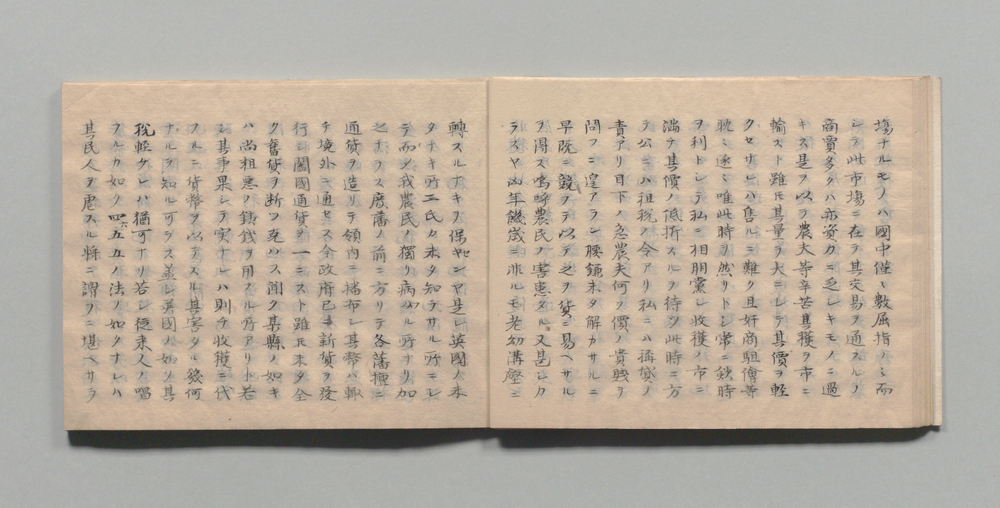 塲ナルモノハ國中僅々數屈指ノミ而
シテ此市塲ニ在テ其交易ヲ通スルノ
商賈多クハ亦資力ニ乏シキモノニ過
キス是ヲ以テ農夫等辛苦其穫ヲ市ニ
輸スト雖𪜈其量ヲ大ニシテ其價ヲ輕
クセサレハ售ルニ難ク且奸商駔儈等
眈々遂々唯此時ヲ然リトシ常ニ欽時
ヲ利トシテ私ニ相朋黨シ收獲ノ市ニ
滿チ其價ノ低折スルヲ待ツ此時ニ方
テ公ニハ租税ノ令アリ私ニハ擠貸ノ
責アリ目下ノ急農夫何ソ價ノ貴賎ヲ
問フニ遑アラン腰鎌未タ解カサルニ
早既ニ競フテ以テ之ヲ貨ニ易ヘサル
ヲ得ス嗚呼農民ノ害患タル又甚シカ
ラスヤ凶年饑歳ニ非ルモ老幼溝壑ニ
轉スルナキヲ保センヤ是レ英國ノ未
タナキ所ニ氏カ未タ知ラサル所ニシ
テ而シテ我農民ノ獨リ病ムル所ナリ加
之ナラス廢藩ノ前ニ方リテ各藩擅ニ
通貨ヲ造リテ領内ニ播布シ其幣ハ輙
チ境外ニ通セス今政府已ニ新貨ヲ發
行シ闔國通貨ヲ一ニスト雖𪜈未タ全
ク舊貨ヲ断フ克ハス聞ク某縣ノ如キ
ハ尚粗悪ノ銭ヲ用フル所アリト若
シ其事果シテ実ナレハ則チ收獲ニ代
フルニ貨幣ヲ以テスル其害タル幾何
ナルヲ知ル可ラス蓋シ英國ノ如ク其
税輕クレハ猶可ナリ若シ從来人ノ唱
フルカ如ク四六五五ノ法ノ如クナレハ
其民人ヲ虐スル将ニ謂フニ堪ヘサラ